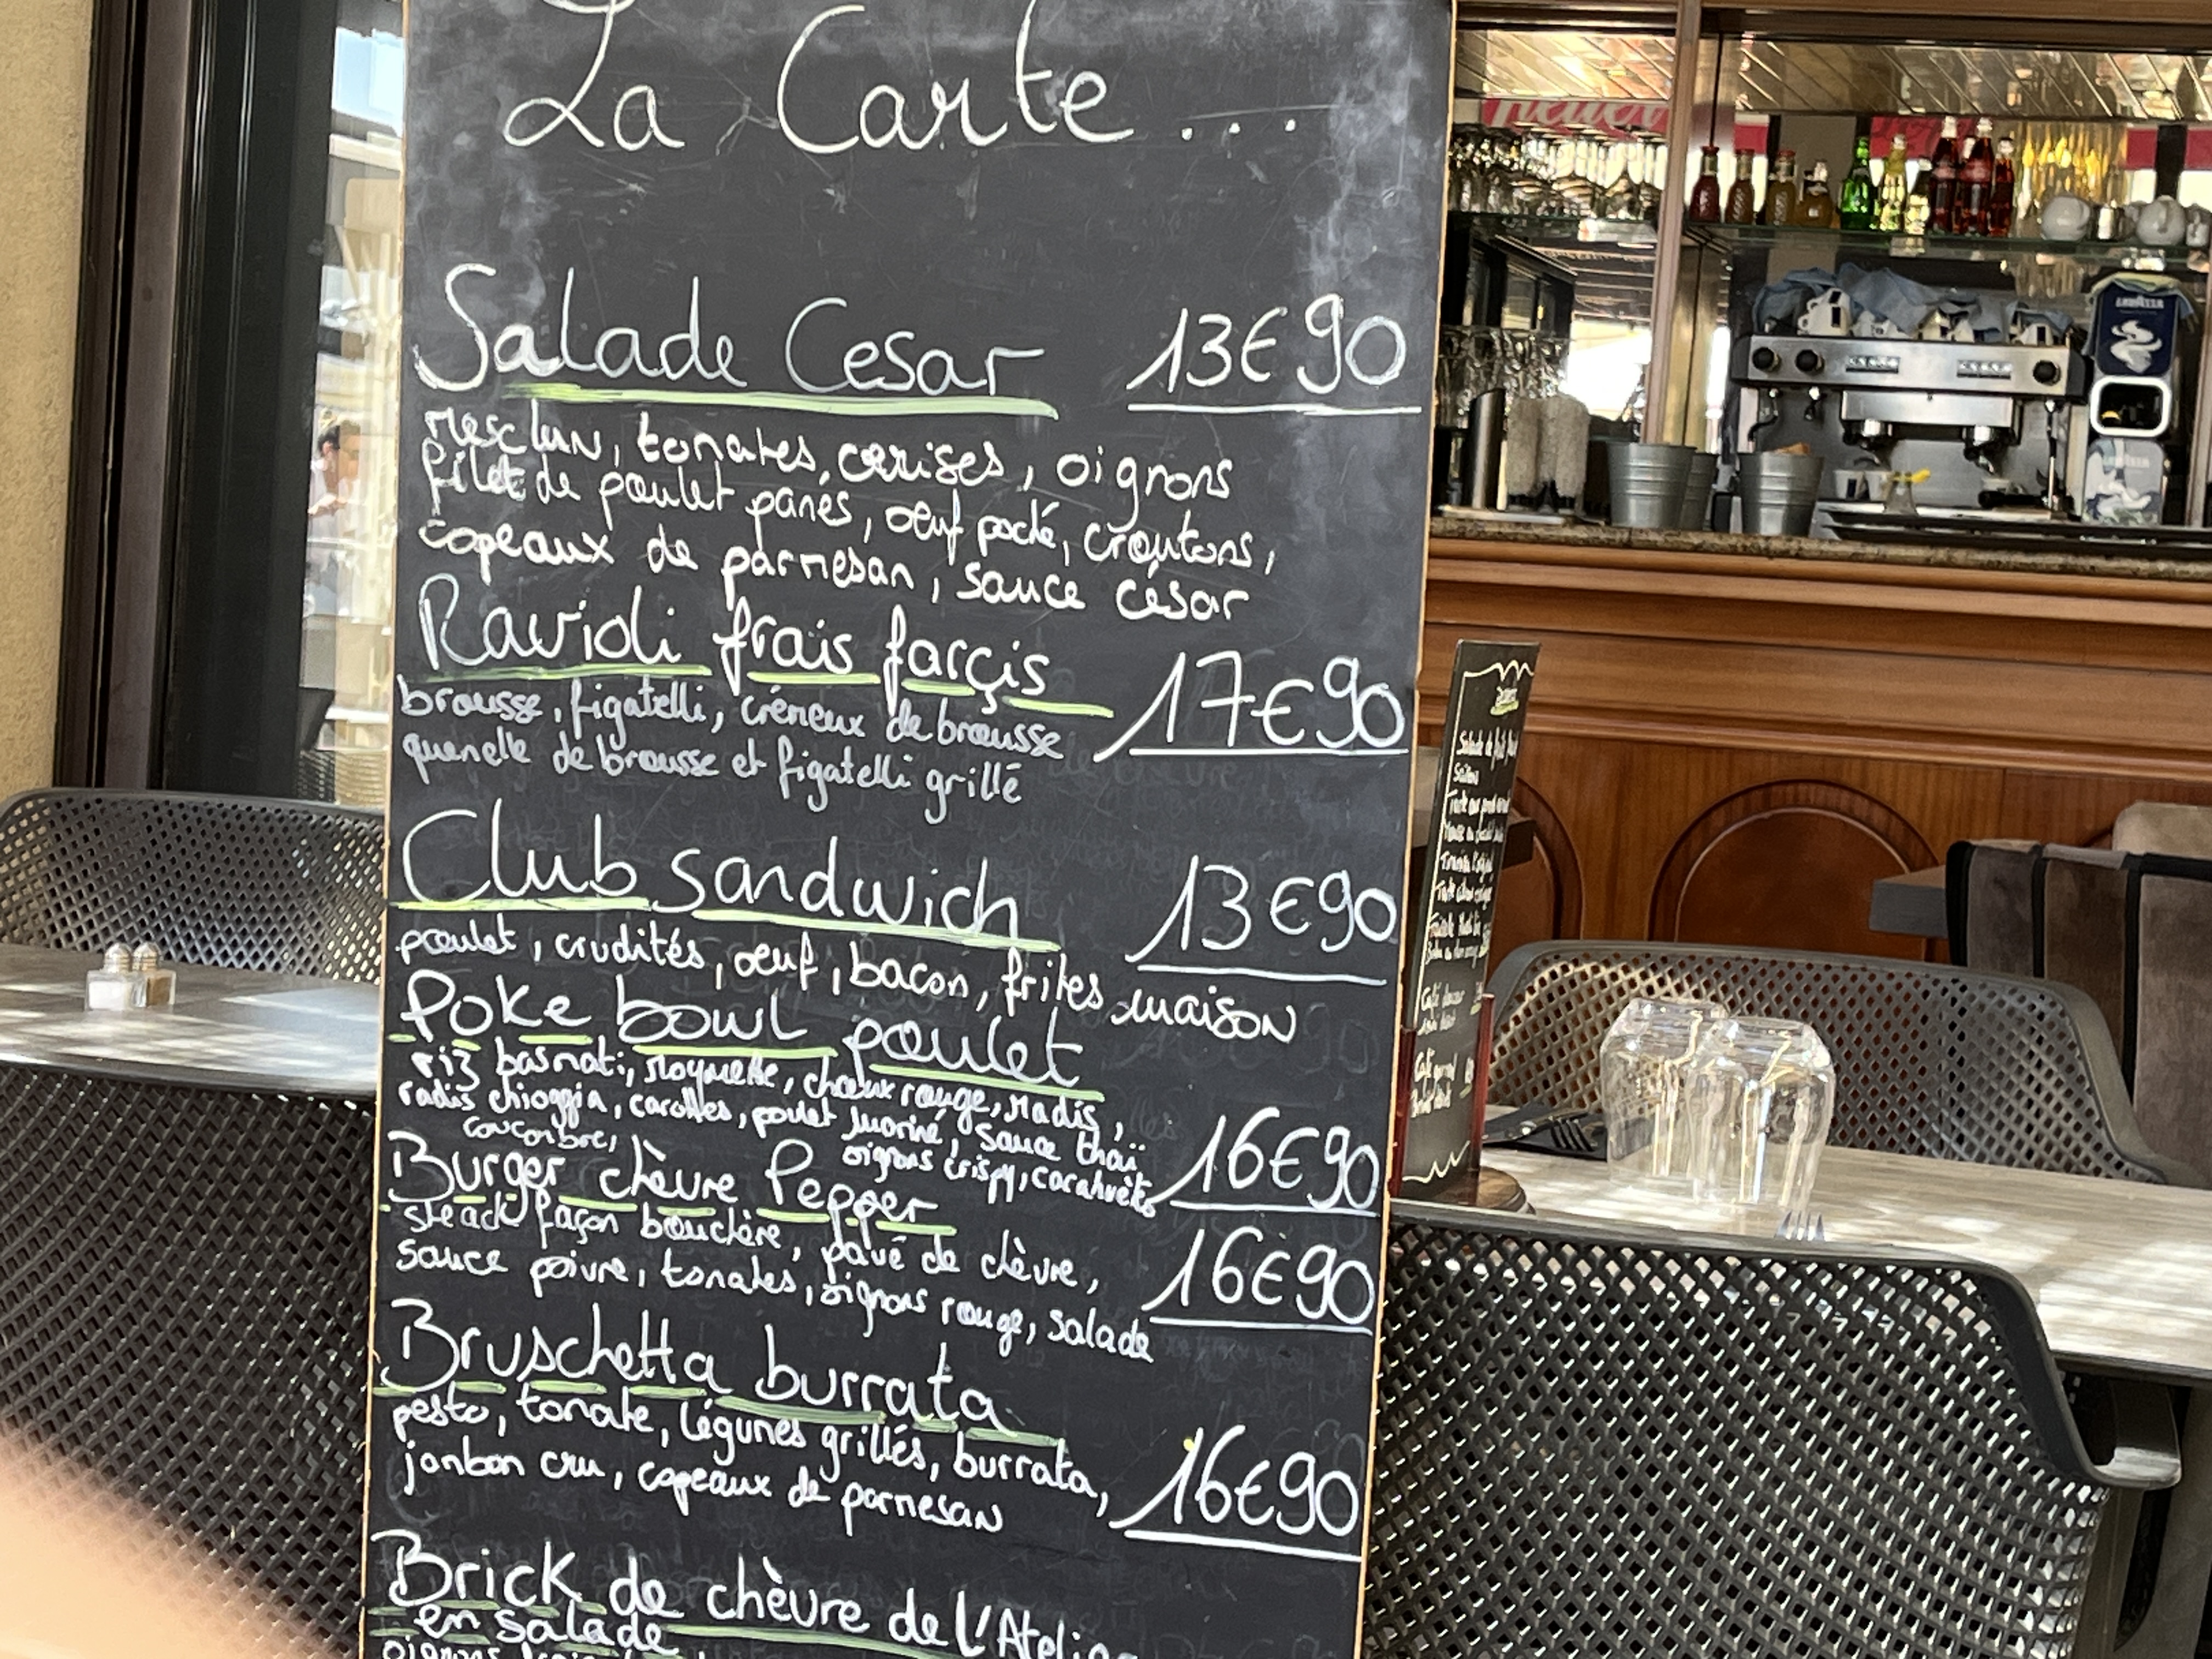 La Carte...
Salade Cesar 13€90
mesclun, tomates, cerises, oignons
filet de poulet panés, œuf poché, croutons,
copeaux de parmesan, sauce césar
Ravioli frais farçis 17€90
brousse, figatelli, crémeux de brousse
quenelle de brousse et figatelli grillé
Club sandwich 13€90
poulet, crudités, œuf, bacon, frites maison
Poke bowl poulet 16€90
riz basmati, roquette, choux rouge, radis,
radis chioggia, carottes, poulet mariné, sauce thaï
concombre, oignons crispy, cacahuètes
Burger chèvre Pepper 16€90
steack façon bouchère, pavé de chèvre,
sauce poivre, tomates, oignons rouge, salade
Bruschetta burrata 16€90
pesto, tomate, légumes grillés, burrata,
jambon cru, copeaux de parmesan
Brick de chèvre de l'Atelier
en salade
oignons
LAVAZZA